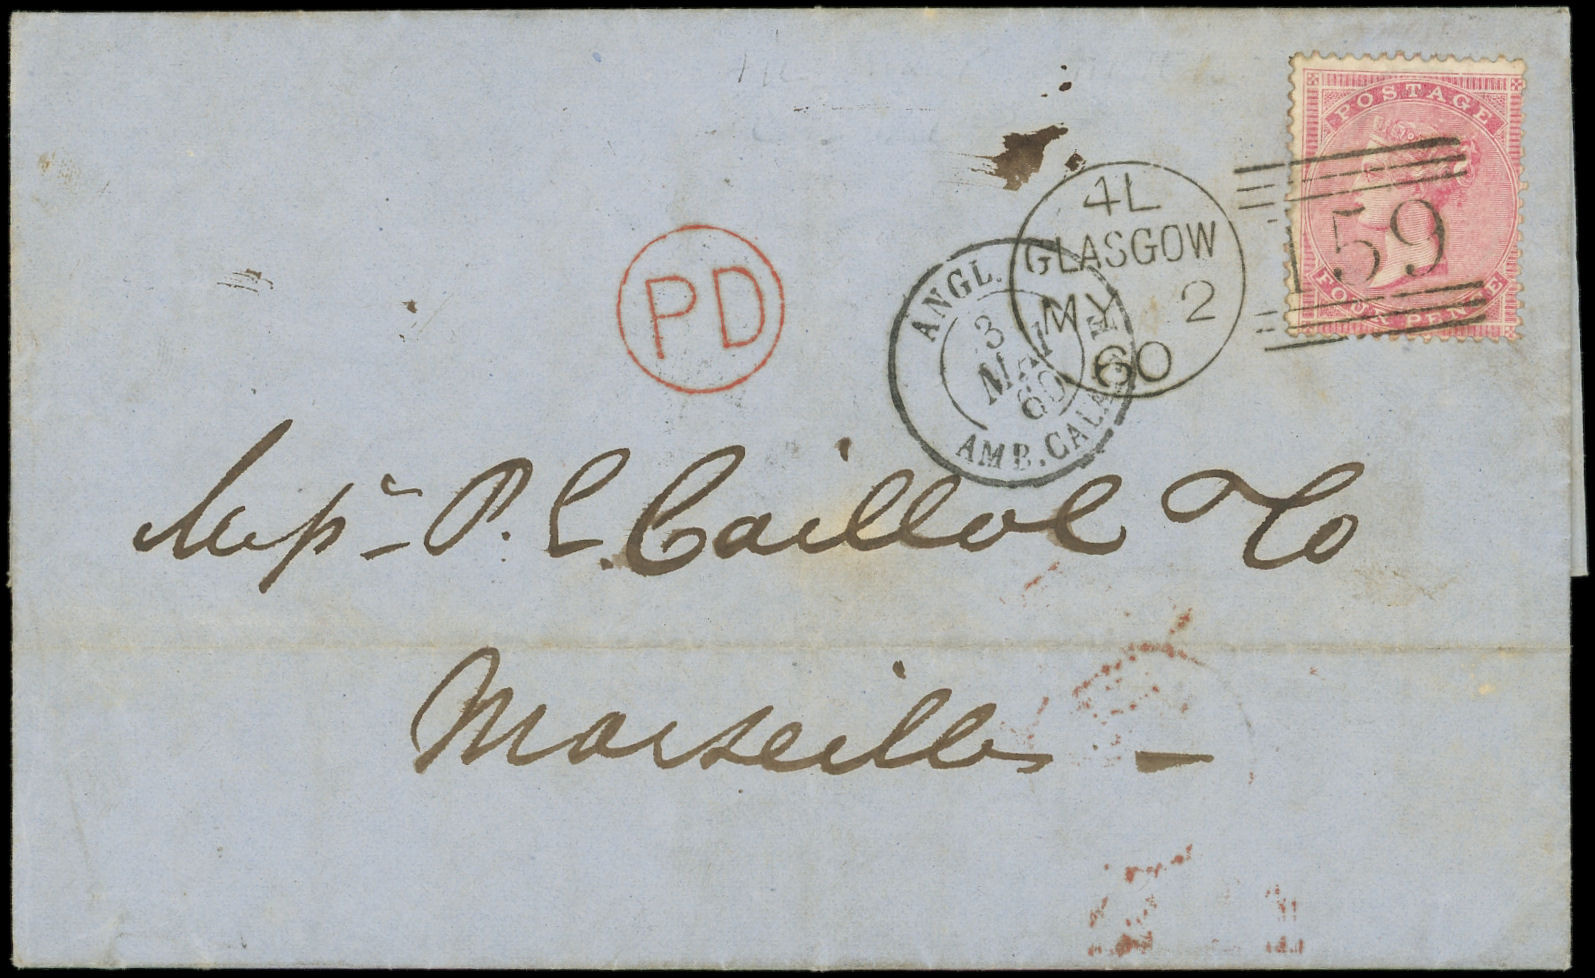 POSTAGE
FOUR PENCE
159
4L
GLASGOW
MY 2
60
ANGL.
AMB. CALAIS
3
MAI
60
PD
Messrs P. L. Caillol & Co
Marseilles –